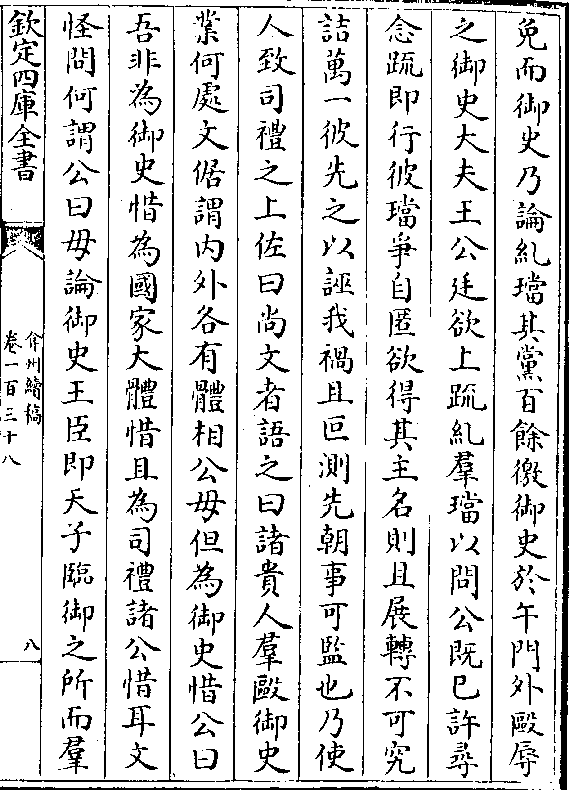 免而御史乃論糺璫其黨百餘徼御史於午門外毆辱
之御史大夫王公廷欲上疏糺羣璫以問公既已許尋
念疏即行彼璫爭自匿欲得其主名則且展轉不可究
詰萬一彼先之以誣我禍且叵測先朝事可監也乃使
人致司禮之上佐曰尚文者語之曰諸貴人羣毆御史
業何處文倨謂内外各有體相公毋但為御史惜公曰
吾非為御史惜為國家大體惜且為司禮諸公惜耳文
怪問何謂公曰毋論御史王臣即天子臨御之所而羣
欽定四庫全書
弇州續稿
卷一百三十八
八